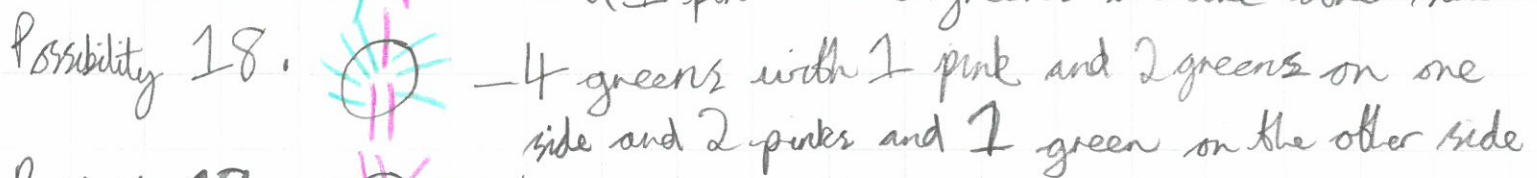 Possibility 18. - 4 greens with 1 pink and 2 greens on one
side and 2 pinks and 1 green on the other side